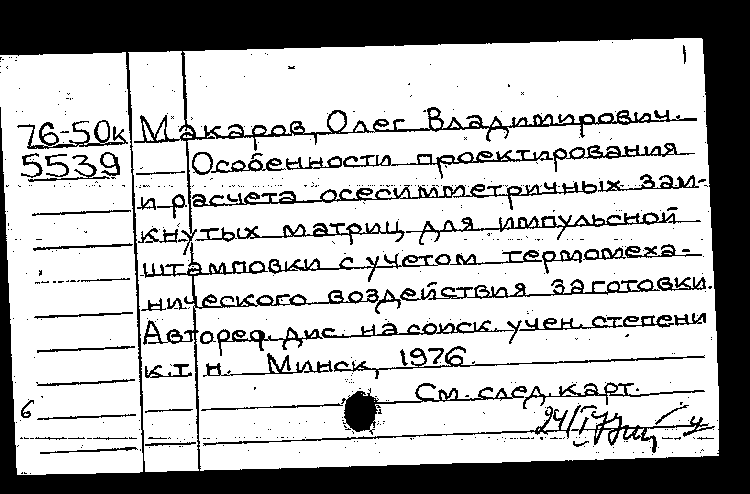 1
76-50к Макаров, Олег Владимирович.
5539 Особенности проектирования
и расчета осесимметричных зам-
кнутых матриц для импульсной
штамповки с учетом термомеха-
нического воздействия заготовки.
Автореф. дис. на соиск. учен. степени
к.т.н. Минск, 1976.
См. след. карт.
6